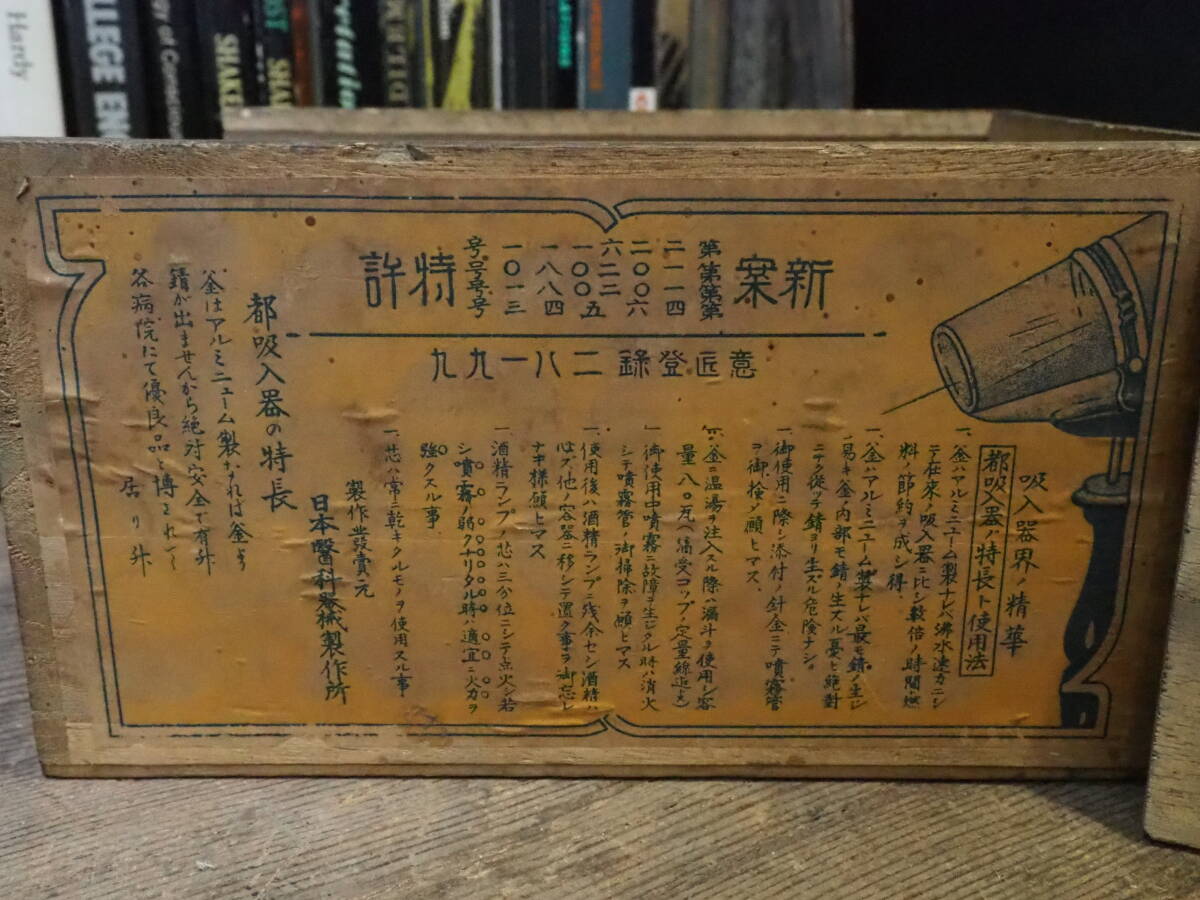 Hardy
SHAKE
SHA
新案
第二二六一一一号
第一〇二〇八〇号
第一〇二〇八一号
第四六五四三号
特許
意匠登録二八一九九
吸入器界ノ精華
都吸入器ノ特長ト使用法
一、釜ハアルミニューム製ナレバ沸水速カニシ
テ在来ノ吸入器ニ比シ数倍ノ時間燃
料ノ節約ヲ成シ得
一、釜ハアルミニューム製ナレバ最モ錆ノ生ジ
易キ釜内部モ錆ノ生ズル憂ヒ絶対
ニナク従ッテ錆ヨリ生ズル危険ナシ。
一、御使用ニ際シ添付ノ針金ニテ噴霧管
ヲ御検ヲ願ヒマス、
一、釜ニ温湯ヲ注入スル際ハ漏斗ヲ使用シ容
量八〇瓦(滴受コップノ定量線迄ナ)
一、御使用中噴霧ニ故障ヲ生ジタル時ハ消火
シテ噴霧管ノ御掃除ヲ願ヒマス
一、使用後ハ酒精ランプニ残余セシ酒精ハ
必ズ他ノ容器ニ移シテ置ク事ヲ御忘レ
ナキ様願ヒマス
一、酒精ランプノ芯ハ三分位ニシテ点火シ若
シ噴霧ノ弱クナリタル時ハ適宜ニ火力ヲ
強クスル事
一、芯ハ常ニ乾キタルモノヲ使用スル事
製作並発賣元
日本醫科器械製作所
都吸入器の特長
釜はアルミニューム製なれば釜より
錆が出ませんから絶対安全で有升
各病院にて優良品と博されて
居り升